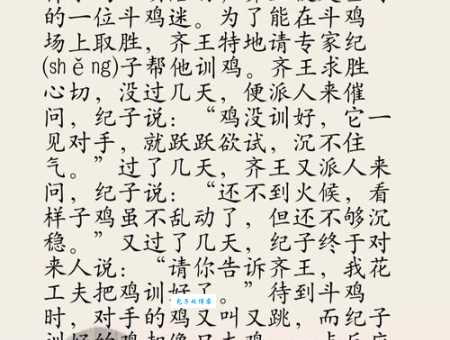 的一位斗鸡迷。为了能在斗鸡
场上取胜，齐王特地请专家纪
(shěng)子帮他训鸡。齐王求胜
心切，没过几天，便派人来催
问，纪子说：“鸡没训好，它一
见对手，就跃跃欲试，沉不住
气。”过了几天，齐王又派人来
问，纪子说：“还不到火候，看
样子鸡虽不乱动了，但还不够沉
稳。”又过了几天，纪子终于对
来人说：“请你告诉齐王，我花
工夫把鸡训好了。”待到斗鸡
时，对手的鸡又叫又跳，而纪子
训好的鸡却像只木鸡